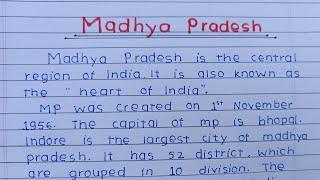 Madhya Pradesh
Madhya Pradesh is the central
region of India. It is also known as
the "heart of India".
MP was created on 1st November
1956. The capital of mp is bhopal.
Indore is the largest city of madhya
pradesh. It has 52 district, which
are grouped in 10 division. The